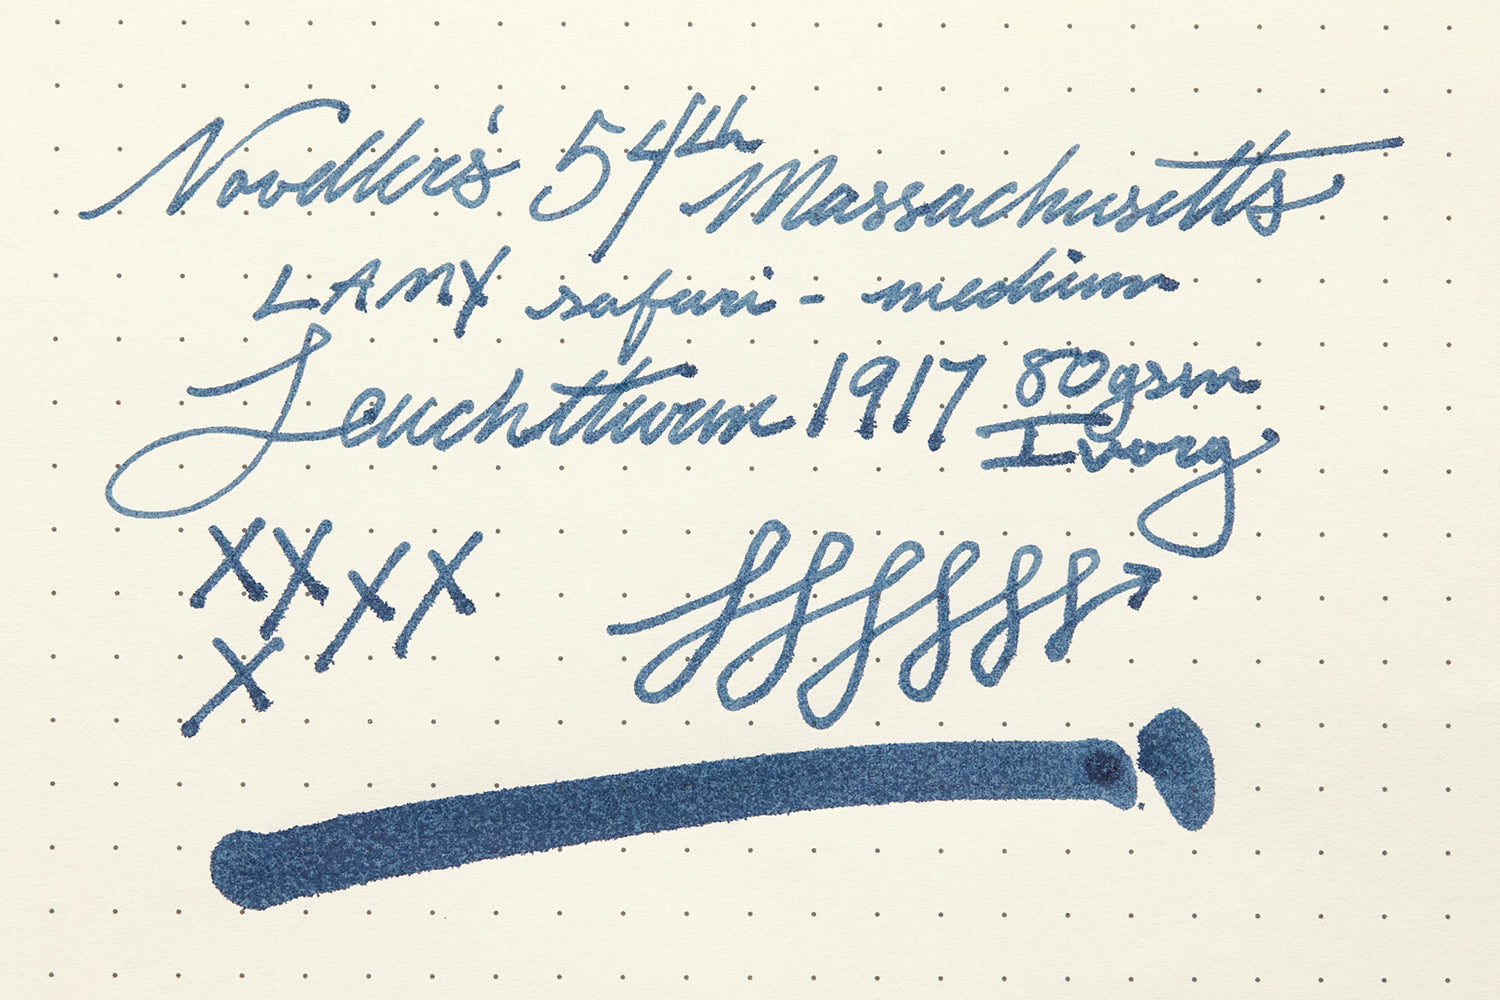 Noodler's 54th Massachusetts
LAMY safari - medium
Leuchtturm 1917 80gsm
Ivory
XXXX
X